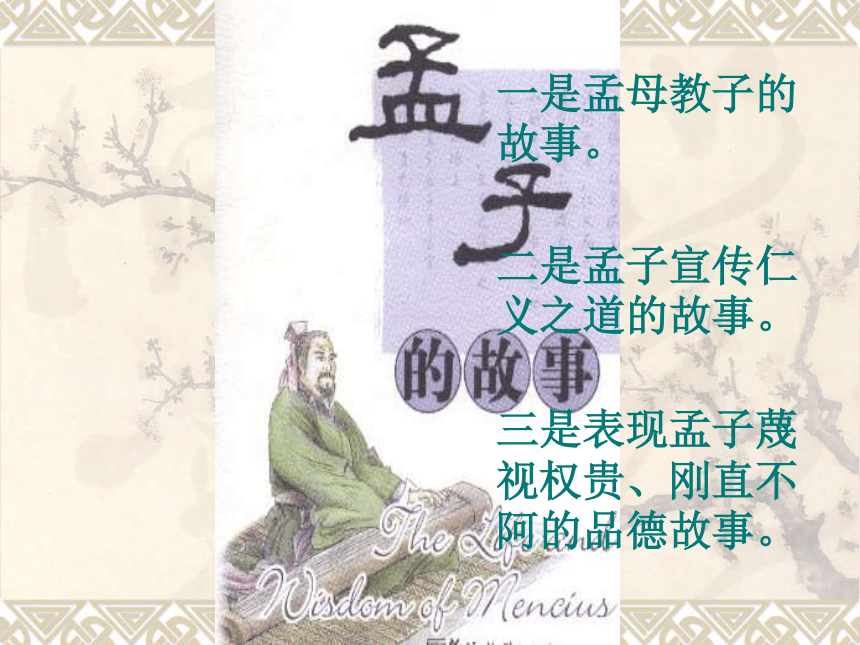 孟子
的故事
一是孟母教子的
故事。
二是孟子宣传仁
义之道的故事。
三是表现孟子蔑
视权贵、刚直不
阿的品德故事。
The Life and
Wisdom of Mencius